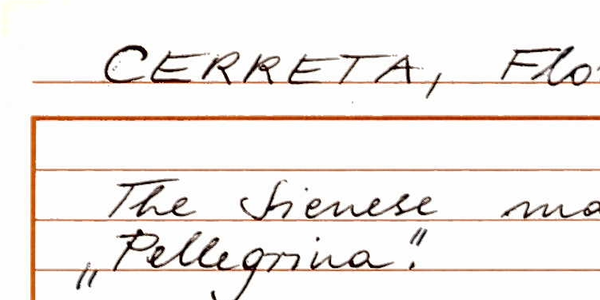 CERRETA, Flo
The Sienese ma
„Pellegrina".